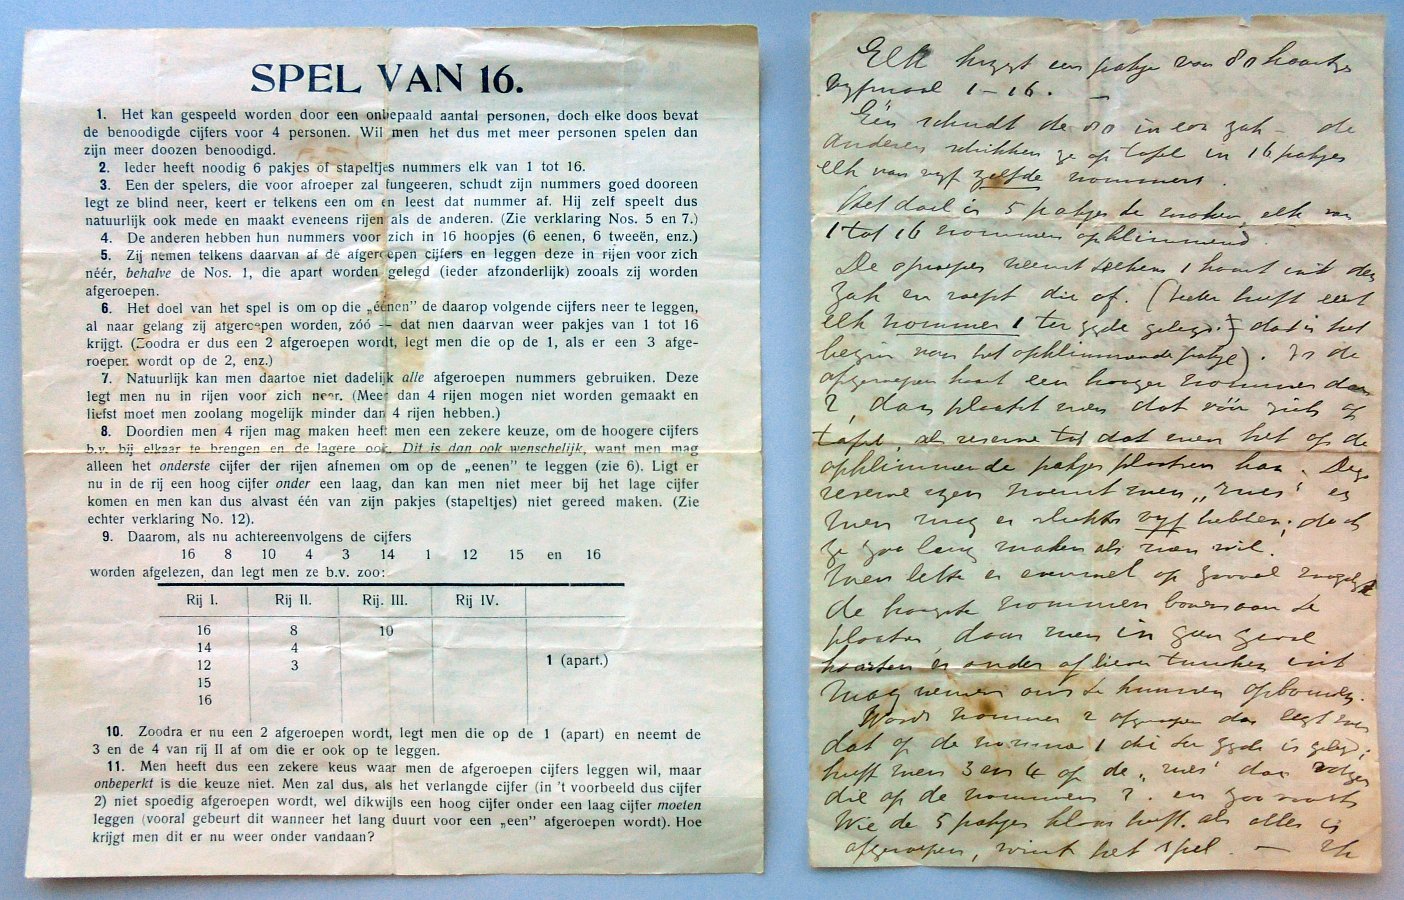 SPEL VAN 16.
1. Het kan gespeeld worden door een onbepaald aantal personen, doch elke doos bevat
de benoodigde cijfers voor 4 personen. Wil men het dus met meer personen spelen dan
zijn meer doozen benoodigd.
2. Ieder heeft noodig 6 pakjes of stapeltjes nummers elk van 1 tot 16.
3. Een der spelers, die voor afroeper zal fungeeren, schudt zijn nummers goed dooreen
legt ze blind neer, keert er telkens een om en leest dat nummer af. Hij zelf speelt dus
natuurlijk ook mede en maakt eveneens rijen als de anderen. (Zie verklaring Nos. 5 en 7.)
4. De anderen hebben hun nummers voor zich in 16 hoopjes (6 eenen, 6 tweeën, enz.)
5. Zij nemen telkens daarvan af de afgeroepen cijfers en leggen deze in rijen voor zich
néér, behalve de Nos. 1, die apart worden gelegd (ieder afzonderlijk) zooals zij worden
afgeroepen.
6. Het doel van het spel is om op die „éénen" de daarop volgende cijfers neer te leggen,
al naar gelang zij afgeroepen worden, zóó — dat men daarvan weer pakjes van 1 tot 16
krijgt. (Zoodra er dus een 2 afgeroepen wordt, legt men die op de 1, als er een 3 afge-
roepen wordt op de 2, enz.)
7. Natuurlijk kan men daartoe niet dadelijk alle afgeroepen nummers gebruiken. Deze
legt men nu in rijen voor zich neer. (Meer dan 4 rijen mogen niet worden gemaakt en
liefst moet men zoolang mogelijk minder dan 4 rijen hebben.)
8. Doordien men 4 rijen mag maken heeft men een zekere keuze, om de hoogere cijfers
b.v. bij elkaar te brengen en de lagere ook. Dit is dan ook wenschelijk, want men mag
alleen het onderste cijfer der rijen afnemen om op de „eenen" te leggen (zie 6). Ligt er
nu in de rij een hoog cijfer onder een laag, dan kan men niet meer bij het lage cijfer
komen en men kan dus alvast één van zijn pakjes (stapeltjes) niet gereed maken. (Zie
echter verklaring No. 12).
9. Daarom, als nu achtereenvolgens de cijfers
16 8 10 4 3 14 1 12 15 en 16
worden afgelezen, dan legt men ze b.v. zoo:
Rij I. Rij II. Rij. III. Rij IV.
16 8 10
14 4
12 3 1 (apart.)
15
16
10. Zoodra er nu een 2 afgeroepen wordt, legt men die op de 1 (apart) en neemt de
3 en de 4 van rij II af om die er ook op te leggen.
11. Men heeft dus een zekere keus waar men de afgeroepen cijfers leggen wil, maar
onbeperkt is die keuze niet. Men zal dus, als het verlangde cijfer (in 't voorbeeld dus cijfer
2) niet spoedig afgeroepen wordt, wel dikwijls een hoog cijfer onder een laag cijfer moeten
leggen (vooral gebeurt dit wanneer het lang duurt voor een „een" afgeroepen wordt). Hoe
krijgt men dit er nu weer onder vandaan?
Elk krijgt een pakje van 80 kaartjes
vyfmaal 1 – 16. —
Eén schudt de 80 in een zak – de
anderen schikken ze op tafel in 16 pakjes
elk van vyf zelfde nommers.
Het doel is 5 pakjes te maken, elk van
1 tot 16 nommers opklimmend.
De oproeper neemt telkens 1 kaart uit den
zak en roept die af. (Ieder heeft eerst
elk nommer 1 ter zyde gelegd. dat is het
begin van het opklimmende pakje). Is de
afgeroepen kaart een hooger nommer dan
2, dan plaatst men dat vóór zich op
tafel als reserve tot dat men het op de
opklimmende pakjes plaatsen kan. Deze
reserve rijen noemt men „rues" en
men mag er slechts vyf hebben; doch
ze zoo lang maken als men wil.
Men lette er evenwel op zooveel mogelyk
de hoogste nommers bovenaan te
plaatsen, daar men in geen geval
kaarten er onder of tusschen uit
mag nemen om te kunnen opbouwen.
Wordt nommer 2 afgeroepen dan legt men
dat op de nommer 1 die ter zyde is gelegd;
heeft men 3 en 4 op de „rues" dan volgen
die op de nommer 2. en zoo voorts
Wie de 5 pakjes klaar heeft. als alles is
afgeroepen, wint het spel. —